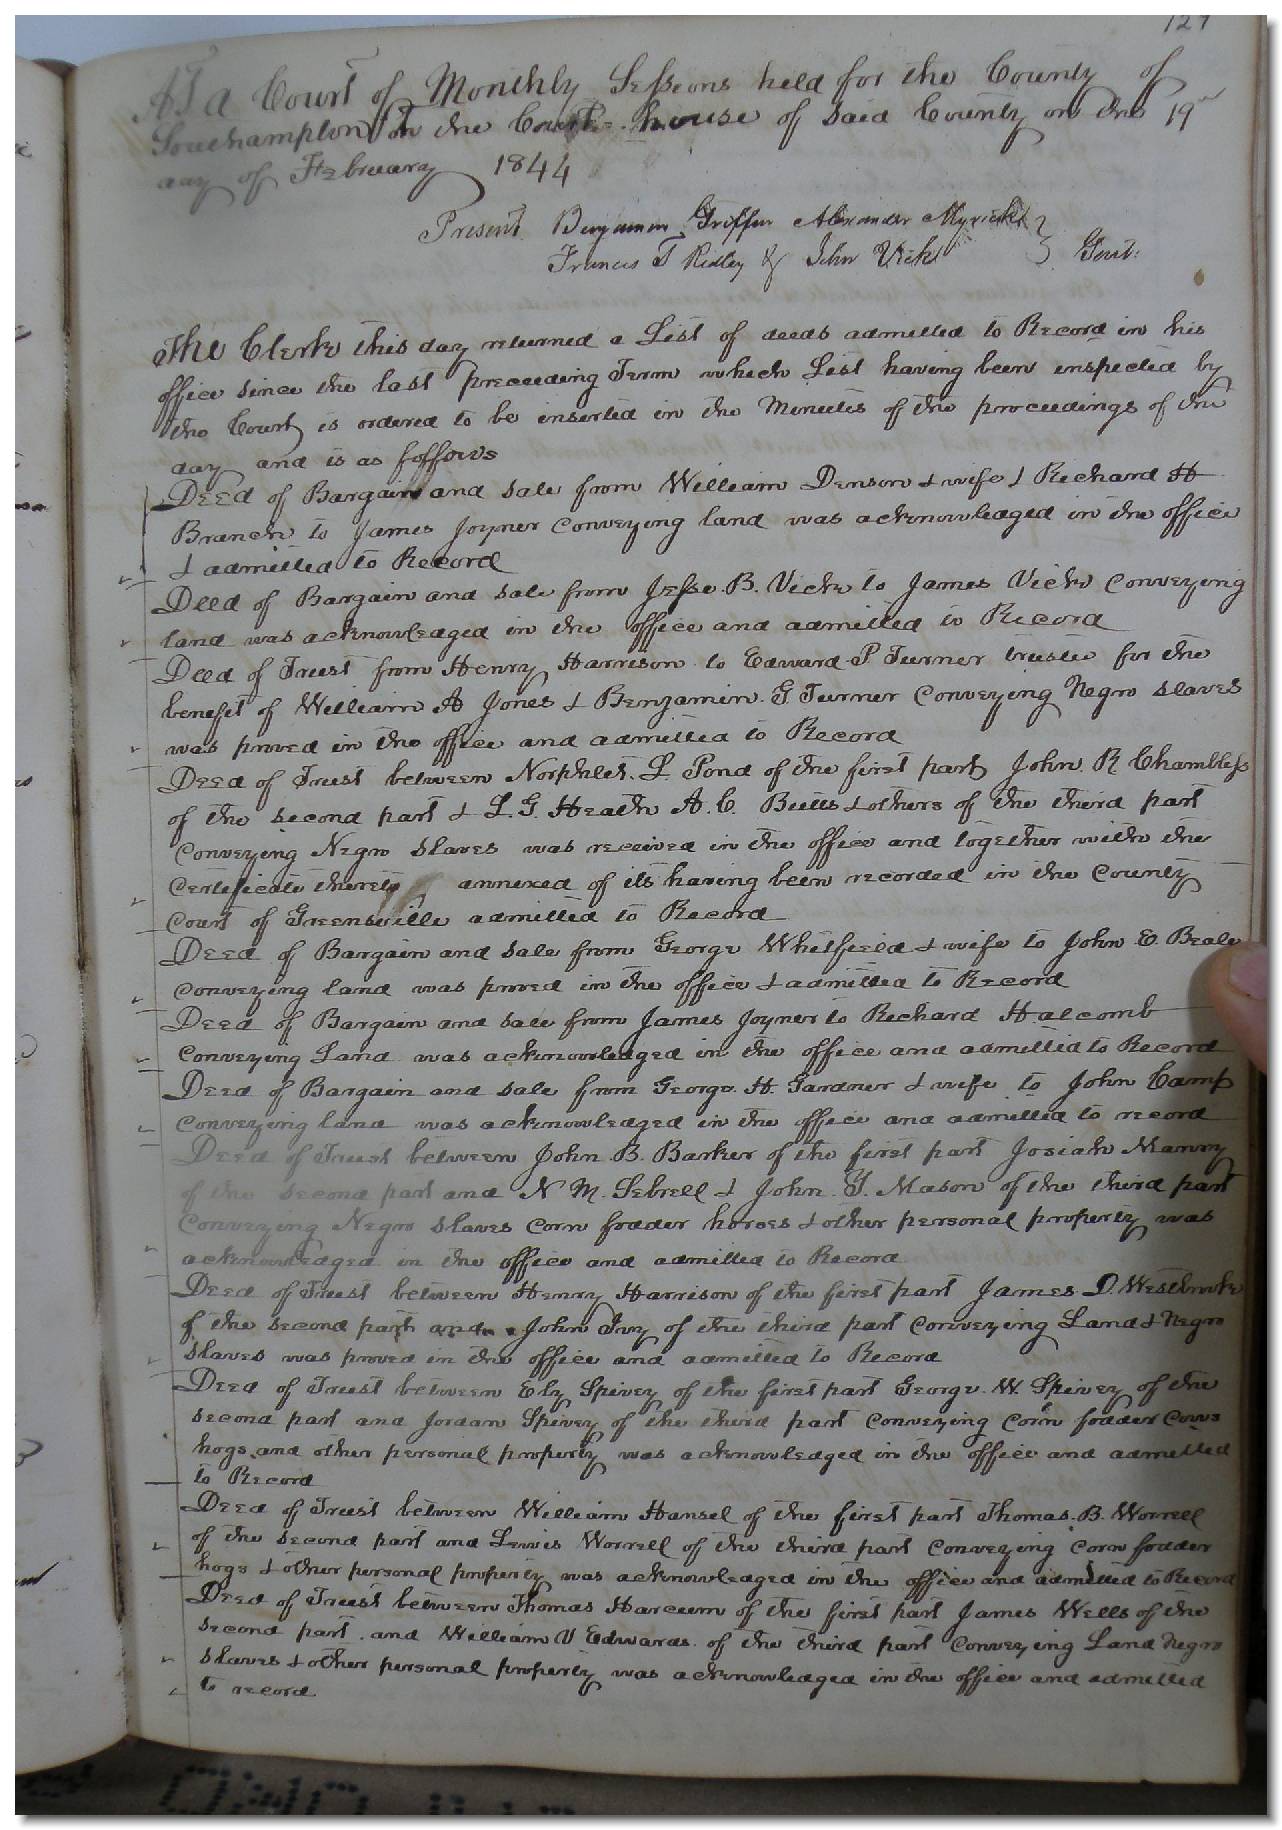 127
At a Court of Monthly Sessions held for the County of
Southampton at the Court house of said County on the 19th
day of February 1844
Present Benjamin Griffin Alexander Myrick
Francis T Ridley & John Vick } Gent:
The Clerk this day returned a List of deeds admitted to Record in his
office since the last preceeding Term which List having been inspected by
the Court is ordered to be inserted in the Minutes of the proceedings of the
day and is as follows
Deed of Bargain and sale from William Denson & wife & Richard H
Branch to James Joyner conveying land was acknowledged in the office
& admitted to Record
Deed of Bargain and sale from Jesse B. Vick to James Vick conveying
land was acknowledged in the office and admitted to Record
Deed of Trust from Henry Harrison to Edward P Turner trustee for the
benefit of William A Jones & Benjamin G Turner Conveying Negro slaves
was proved in the office and admitted to Record
Deed of Trust between Norphlet L. Pond of the first part John R Chambless
of the second part & L. G. Heath A. C. Butts & others of the third part
Conveying Negro slaves was received in the office and together with the
Certificate thereto annexed of its having been recorded in the County
Court of Greensville admitted to Record
Deed of Bargain and sale from George Whitfield & wife to John E. Beale
conveying land was proved in the office & admitted to Record
Deed of Bargain and sale from James Joyner to Richard Halcomb
Conveying Land was acknowledged in the office and admitted to Record
Deed of Bargain and sale from George H. Gardner & wife to John Camp
conveying land was acknowledged in the office and admitted to record
Deed of Trust between John B. Barker of the first part Josiah Manry
of the second part and N M. Sebrell & John G. Mason of the third part
Conveying Negro slaves corn fodder horses & other personal property was
acknowledged in the office and admitted to Record
Deed of Trust between Henry Harrison of the first part James D. Westbrook
of the second part and John Ivy of the third part Conveying Land & Negro
slaves was proved in the office and admitted to Record
Deed of Trust between Ely Spivey of the first part George W. Spivey of the
second part and Jordan Spivey of the third part conveying Corn fodder Cows
hogs and other personal property was acknowledged in the office and admitted
to Record
Deed of Trust between William Hansel of the first part Thomas B. Worrell
of the second part and Lewis Worrell of the third part Conveying Corn fodder
hogs & other personal property was acknowledged in the office and admitted to Record
Deed of Trust between Thomas Harcum of the first part James Wells of the
second part and William U Edwards of the third part Conveying Land Negro
slaves & other personal property was acknowledged in the office and admitted
to record